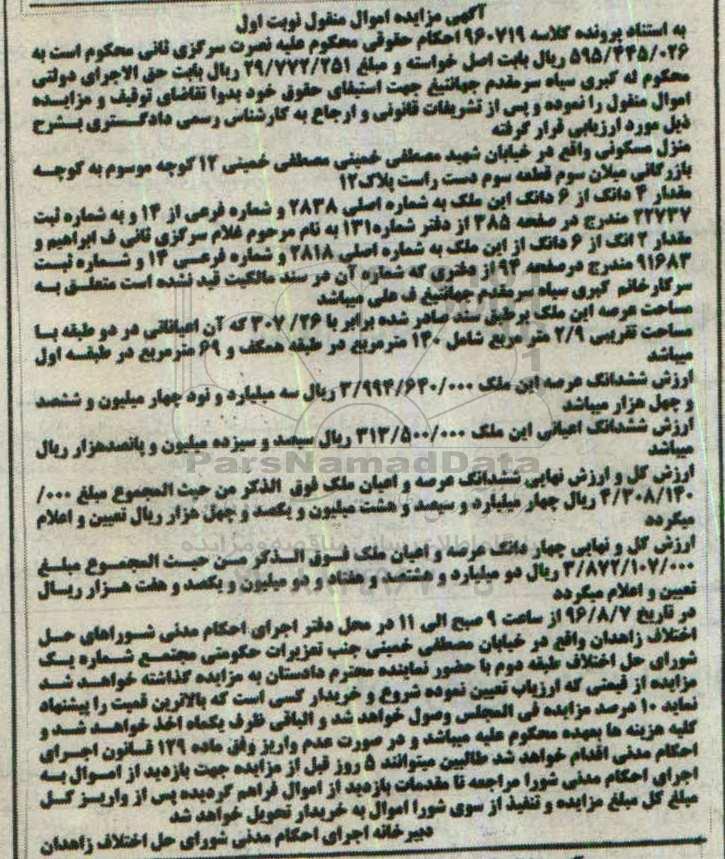 آگهی مزایده اموال منقول نوبت اول
به استناد پرونده کلاسه ۹۶۰۷۱۹ احکام حقوقی محکوم علیه نصرت سرگزی ثانی محکوم است به
۵۹۵/۴۴۵/۰۲۶ ریال بابت اصل خواسته و مبلغ ۲۹/۷۷۲/۲۵۱ ریال بابت حق الاجرای دولتی
محکوم له کبری سیاه سرمقدم جهانتیغ جهت استیفای حقوق خود بدوا تقاضای توقیف و مزایده
اموال منقول را نموده و پس از تشریفات قانونی و ارجاع به کارشناس رسمی دادگستری بشرح
ذیل مورد ارزیابی قرار گرفته
منزل مسکونی واقع در خیابان شهید مصطفی خمینی مصطفی خمینی ۱۲ کوچه موسوم به کوچه
بازرگانی میلان سوم قطعه سوم دست راست پلاک۱۲
مقدار ۴ دانک از ۶ دانک این ملک به شماره اصلی ۲۸۳۸ و شماره فرعی از ۱۴ و به شماره ثبت
۲۲۷۳۷ مندرج در صفحه ۳۸۵ از دفتر شماره۱۳۱ به نام مرحوم غلام سرگزی ثانی ف ابراهیم و
مقدار ۲ انگ از ۶ دانگ از این ملک به شماره اصلی ۲۸۱۸ و شماره فرعی ۱۴ و شماره ثبت
۹۱۶۸۳ مندرج درصفحه ۹۴ از دفتری که شماره آن در سند مالکیت قید نشده است متعلق به
سرکارخانم کبری سیاه سرمقدم جهانتیغ ف علی میباشد
مساحت عرصه این ملک برطبق سند صادر شده برابر با ۳۰۷/۲۶ که آن اعیاناتی در دو طبقه با
مساحت تقریبی ۲/۹ متر مربع شامل ۱۴۰ مترمربع در طبقه همکف و ۶۹ مترمربع در طبقه اول
میباشد
ارزش ششدانگ عرصه این ملک ۳/۹۹۴/۶۴۰/۰۰۰ ریال سه میلیارد و نود چهار میلیون و ششصد
و چهل هزار میباشد
ارزش ششدانگ اعیانی این ملک ۳۱۳/۵۰۰/۰۰۰ ریال سیصد و سیزده میلیون و پانصدهزار ریال
میباشد
ارزش کل و ارزش نهایی ششدانگ عرصه و اعیان ملک فوق الذکر من حیث المجموع مبلغ ۰۰۰/
۴/۳۰۸/۱۴۰ ریال چهار میلیارد و سیصد و هشت میلیون و یکصد و چهل هزار ریال تعیین و اعلام
میگردد
ارزش کل و نهایی چهار دانگ عرصه و اعیان ملک فوق الذکر من حیث المجموع مبلغ
۳/۸۷۲/۱۰۷/۰۰۰ ریال دو میلیارد و هشتصد و هفتاد و دو میلیون و یکصد و هفت هزار ریال
تعیین و اعلام میگردد
در تاریخ ۹۶/۸/۷ از ساعت ۹ صبح الی ۱۱ در محل دفتر اجرای احکام مدنی شوراهای حل
اختلاف زاهدان واقع در خیابان مصطفی خمینی جنب تعزیرات حکومتی مجتمع شماره یک
شورای حل اختلاف طبقه دوم با حضور نماینده محترم دادستان به مزایده گذاشته خواهد شد
مزایده از قیمتی که ارزیاب تعیین نموده شروع و خریدار کسی است که بالاترین قمیت را پیشنهاد
نماید ۱۰ درصد مزایده فی المجلس وصول خواهد شد و الباقی ظرف یکماه اخذ خواهد شد و
کلیه هزینه ها بعهده محکوم علیه میباشد و در صورت عدم واریز وفق ماده ۱۲۹ قانون اجرای
احکام مدنی اقدام خواهد شد طالبین میتوانند ۵ روز قبل از مزایده جهت بازدید از اموال به
اجرای احکام مدنی شورا مراجعه تا مقدمات بازدید از اموال فراهم گردیده پس از واریز کل
مبلغ کل مبلغ مزایده و تنفیذ از سوی شورا اموال به خریدار تحویل خواهد شد
دبیرخانه اجرای احکام مدنی شورای حل اختلاف زاهدان
ParsNamadData